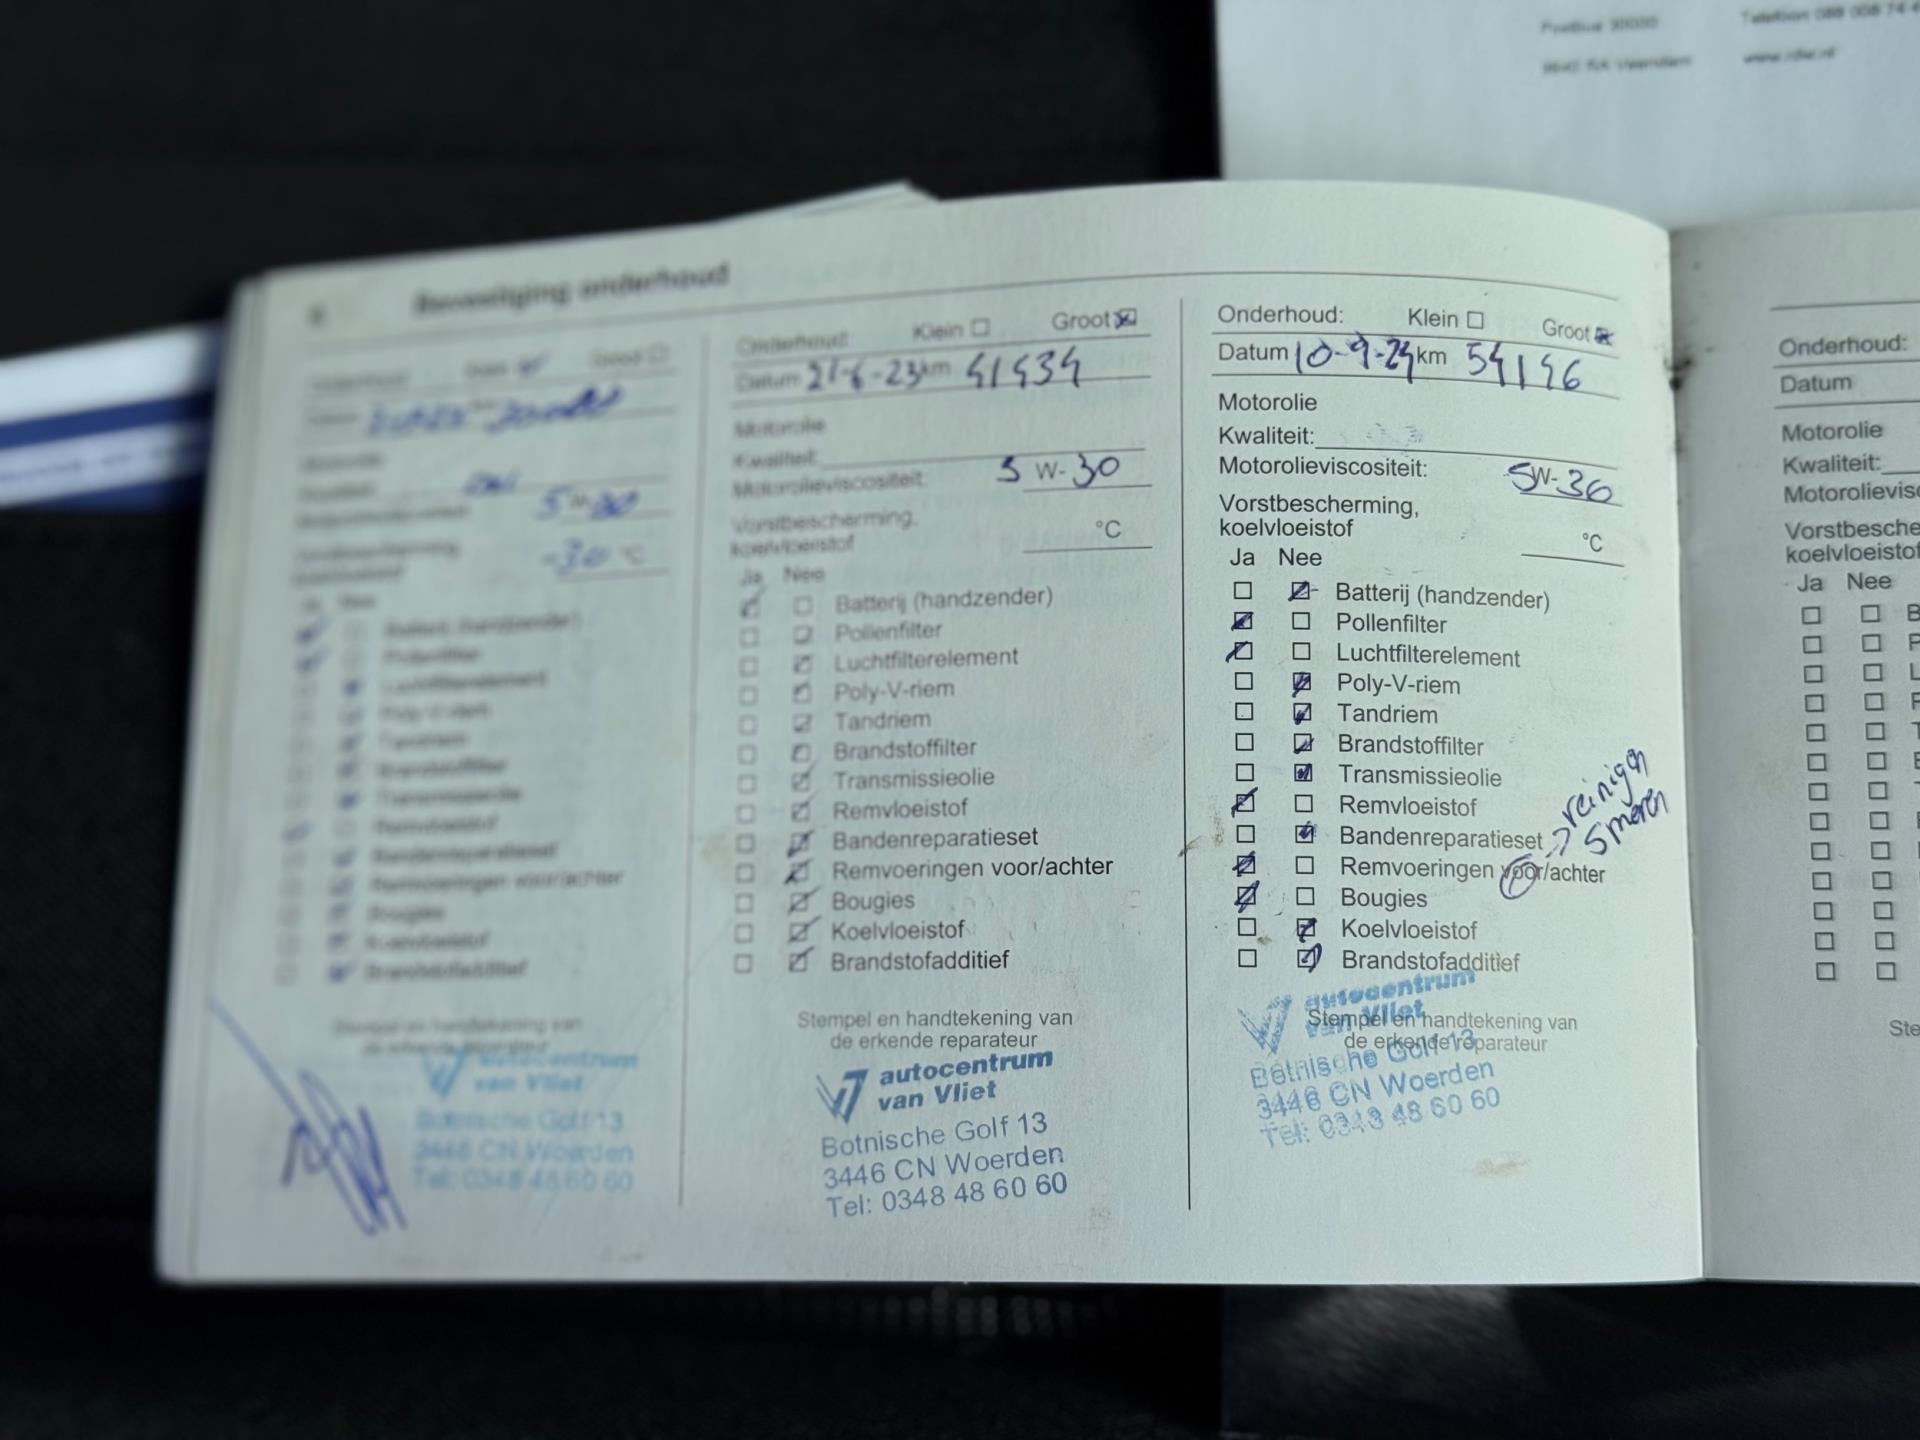 Postbus 30000
Telefoon 088 008 74 4
9640 RA Veendam
www.rdw.nl
Bevestiging onderhoud
Groot
5 W-30
-30 °C
Batterij (handzender)
Pollenfilter
Luchtfilterelement
Poly-V-riem
Tandriem
Brandstoffilter
Transmissieolie
Remvloeistof
Bandenreparatieset
Remvoeringen voor/achter
Bougies
Koelvloeistof
Brandstofadditief
Stempel en handtekening van
de erkende reparateur
autocentrum
van Vliet
Botnische Golf 13
3446 CN Woerden
Tel: 0348 48 60 60
Onderhoud: Klein Groot
Datum 21-6-23 km 41434
Motorolie
Kwaliteit:
Motorolieviscositeit: 5 W-30
Vorstbescherming,
koelvloeistof °C
Ja Nee
Batterij (handzender)
Pollenfilter
Luchtfilterelement
Poly-V-riem
Tandriem
Brandstoffilter
Transmissieolie
Remvloeistof
Bandenreparatieset
Remvoeringen voor/achter
Bougies
Koelvloeistof
Brandstofadditief
Stempel en handtekening van
de erkende reparateur
autocentrum
van Vliet
Botnische Golf 13
3446 CN Woerden
Tel: 0348 48 60 60
Onderhoud: Klein Groot
Datum 10-9-24 km 54146
Motorolie
Kwaliteit:
Motorolieviscositeit: 5W-30
Vorstbescherming,
koelvloeistof °C
Ja Nee
Batterij (handzender)
Pollenfilter
Luchtfilterelement
Poly-V-riem
Tandriem
Brandstoffilter
Transmissieolie
Remvloeistof
Bandenreparatieset
Remvoeringen voor/achter
-> reinigen
smeren
Bougies
Koelvloeistof
Brandstofadditief
Stempel en handtekening van
de erkende reparateur
autocentrum
van Vliet
Botnische Golf 13
3446 CN Woerden
Tel: 0348 48 60 60
Onderhoud:
Datum
Motorolie
Kwaliteit:
Motorolievisc
Vorstbesche
koelvloeistof
Ja Nee
Ste